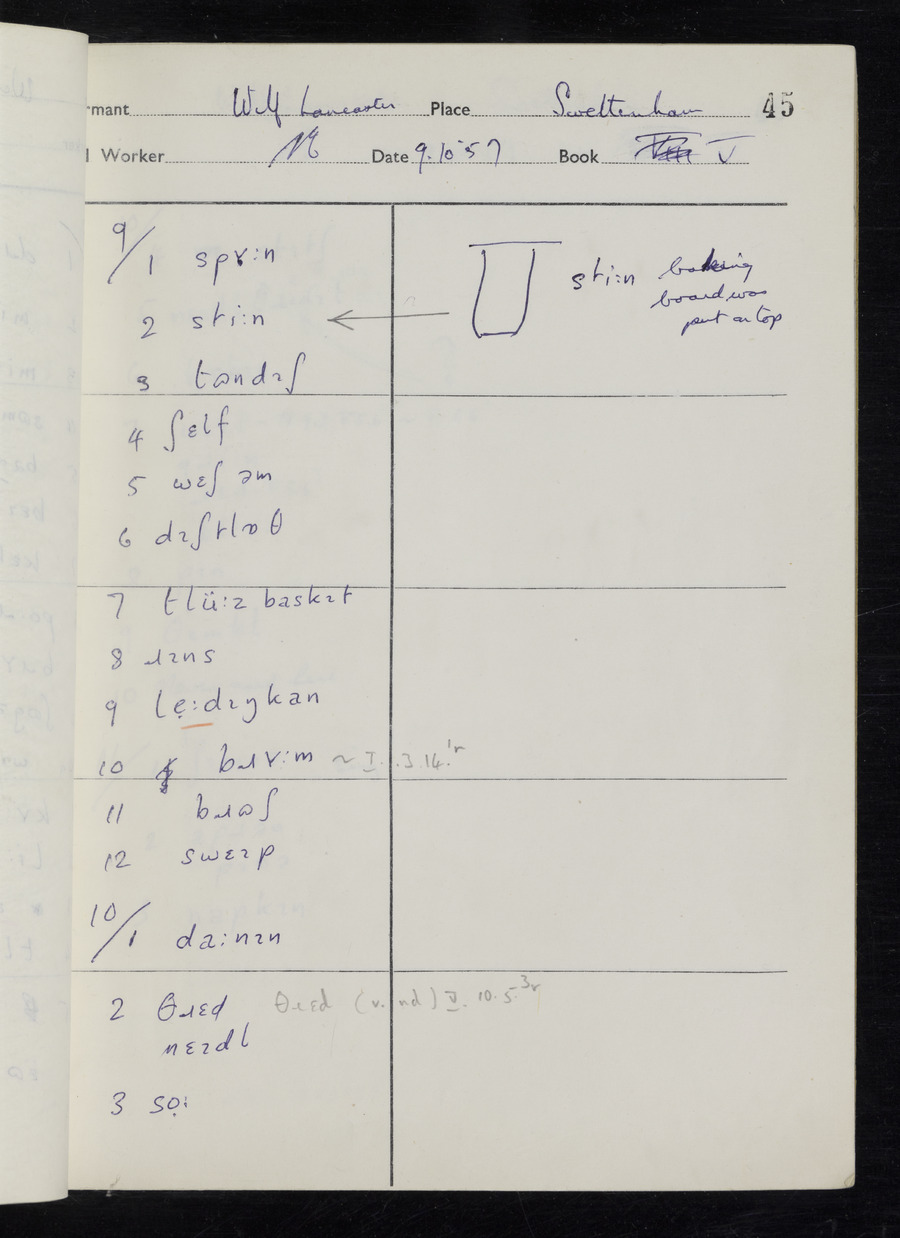 rmant Wilf Lancaster Place Swettenham 45
l Worker Date 9.10.57 Book V
9/1 spɤ:n
2 sti:n
sti:n baking
board was
put on top
3 tɷndɪʃ
4 ʃɛlf
5 wɛʃ əm
6 dɪʃtlɒθ
7 tlü:z baskɪt
8 ɹɪns
9 lẹ:dɪŋkan
10 bɹɤ:m ~ I. 3.14.'r
11 bɹɷʃ
12 swɛɪp
10/1 da:nɪn
2 θɹɛd θɹɛd (v. nd) V. 10.5.³r
nɛɪdl
3 sọ: